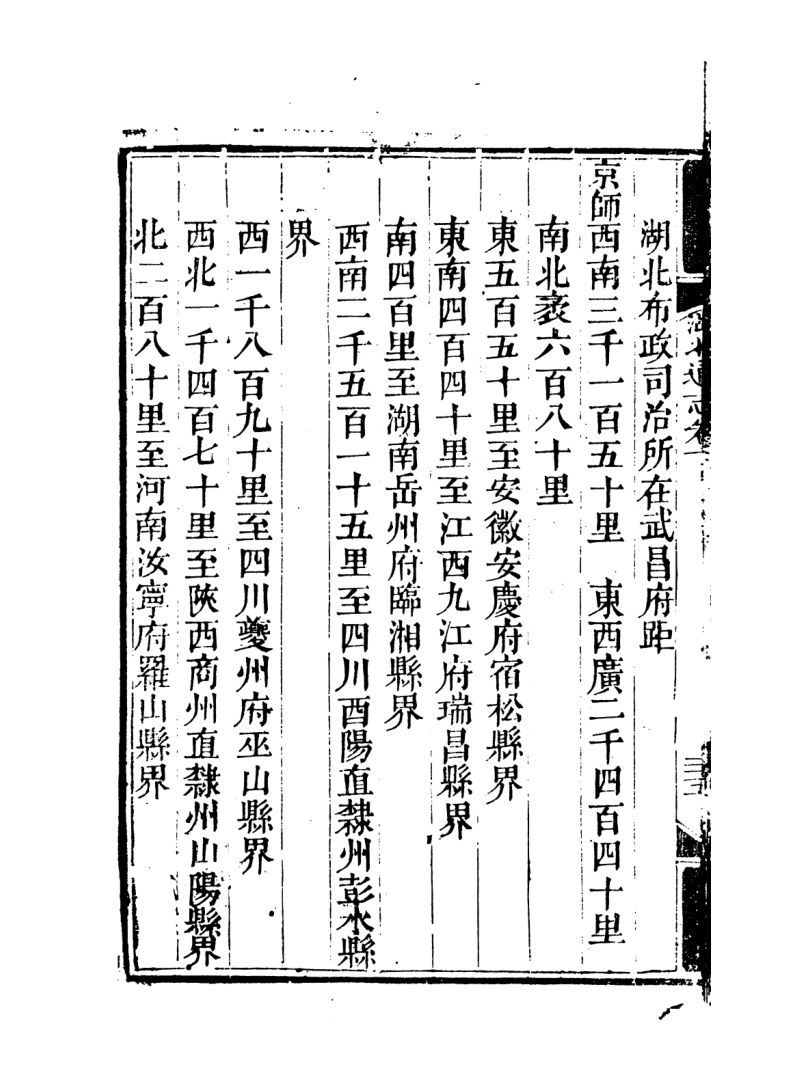 湖北布政司治所在武昌府距
京師西南三千一百五十里　東西廣二千四百四十里
南北袤六百八十里
東五百五十里至安徽安慶府宿松縣界
東南四百四十里至江西九江府瑞昌縣界
南四百里至湖南岳州府臨湘縣界
西南二千五百一十五里至四川酉陽直隸州彭水縣
界
西一千八百九十里至四川夔州府巫山縣界
西北一千四百七十里至陝西商州直隸州山陽縣界
北二百八十里至河南汝寧府羅山縣界